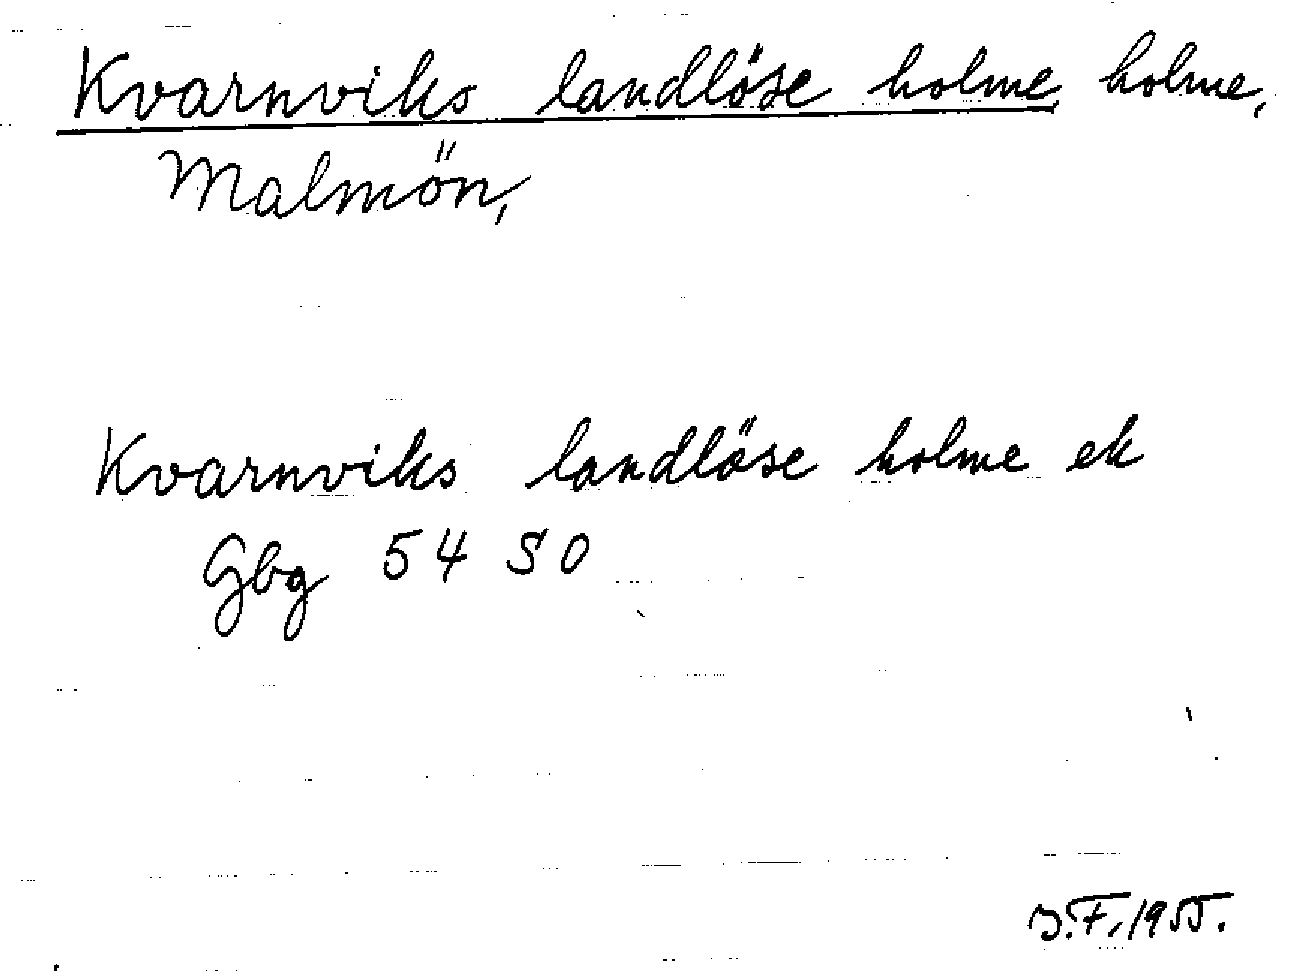 Kvarnviks landlöse holme, holme,
Malmön,
Kvarnviks landlöse holme ek
Gbg 54 SO
J.F. 1955.